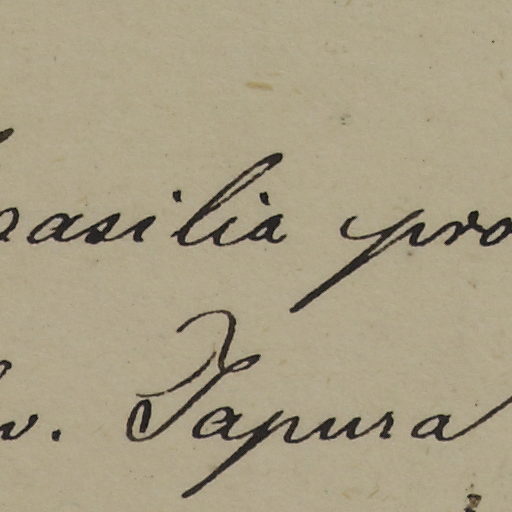 rasilia pro
v. Japura